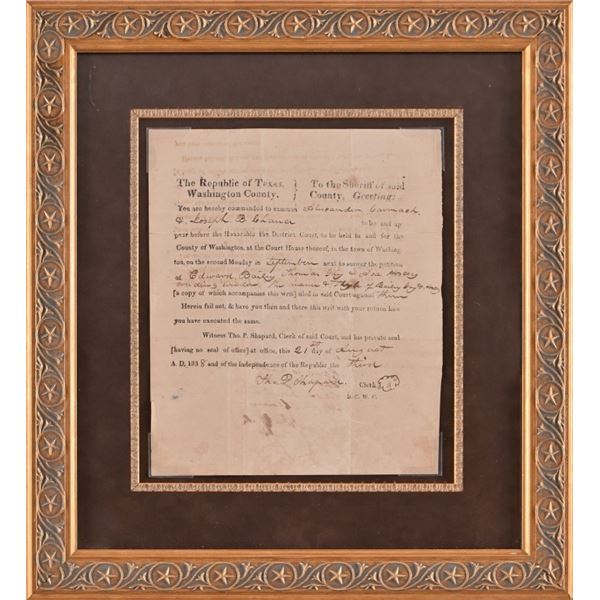 The Republic of Texas, Washington County.
To the Sheriff of said County, Greeting:
You are hereby commanded to summon Alexander Carmack
& Joseph B. Chance to be and ap
pear before the Honorable the District Court, to be held in and for the
County of Washington, at the Court House thereof, in the town of Washing-
ton, on the second Monday in September next to answer the petition
of Edward Bailey Thomas Gay &
trading under the name & Style of Bailey Gay &
[a copy of which accompanies this writ] filed in said Court against them
Herein fail not, & have you then and there this writ with your return how
you have executed the same.
Witness Tho. P. Shapard, Clerk of said Court, and his private seal
[having no seal of office] at office, this 21st day of August
A. D, 1838 and of the Independence of the Republic the third
Tho. P. Shapard Clerk
D. C. W. C.